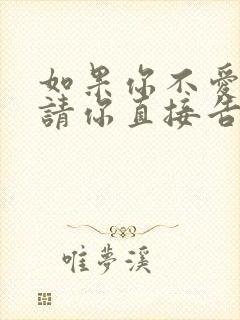 如果你不愛
請你直接告
唯夢溪